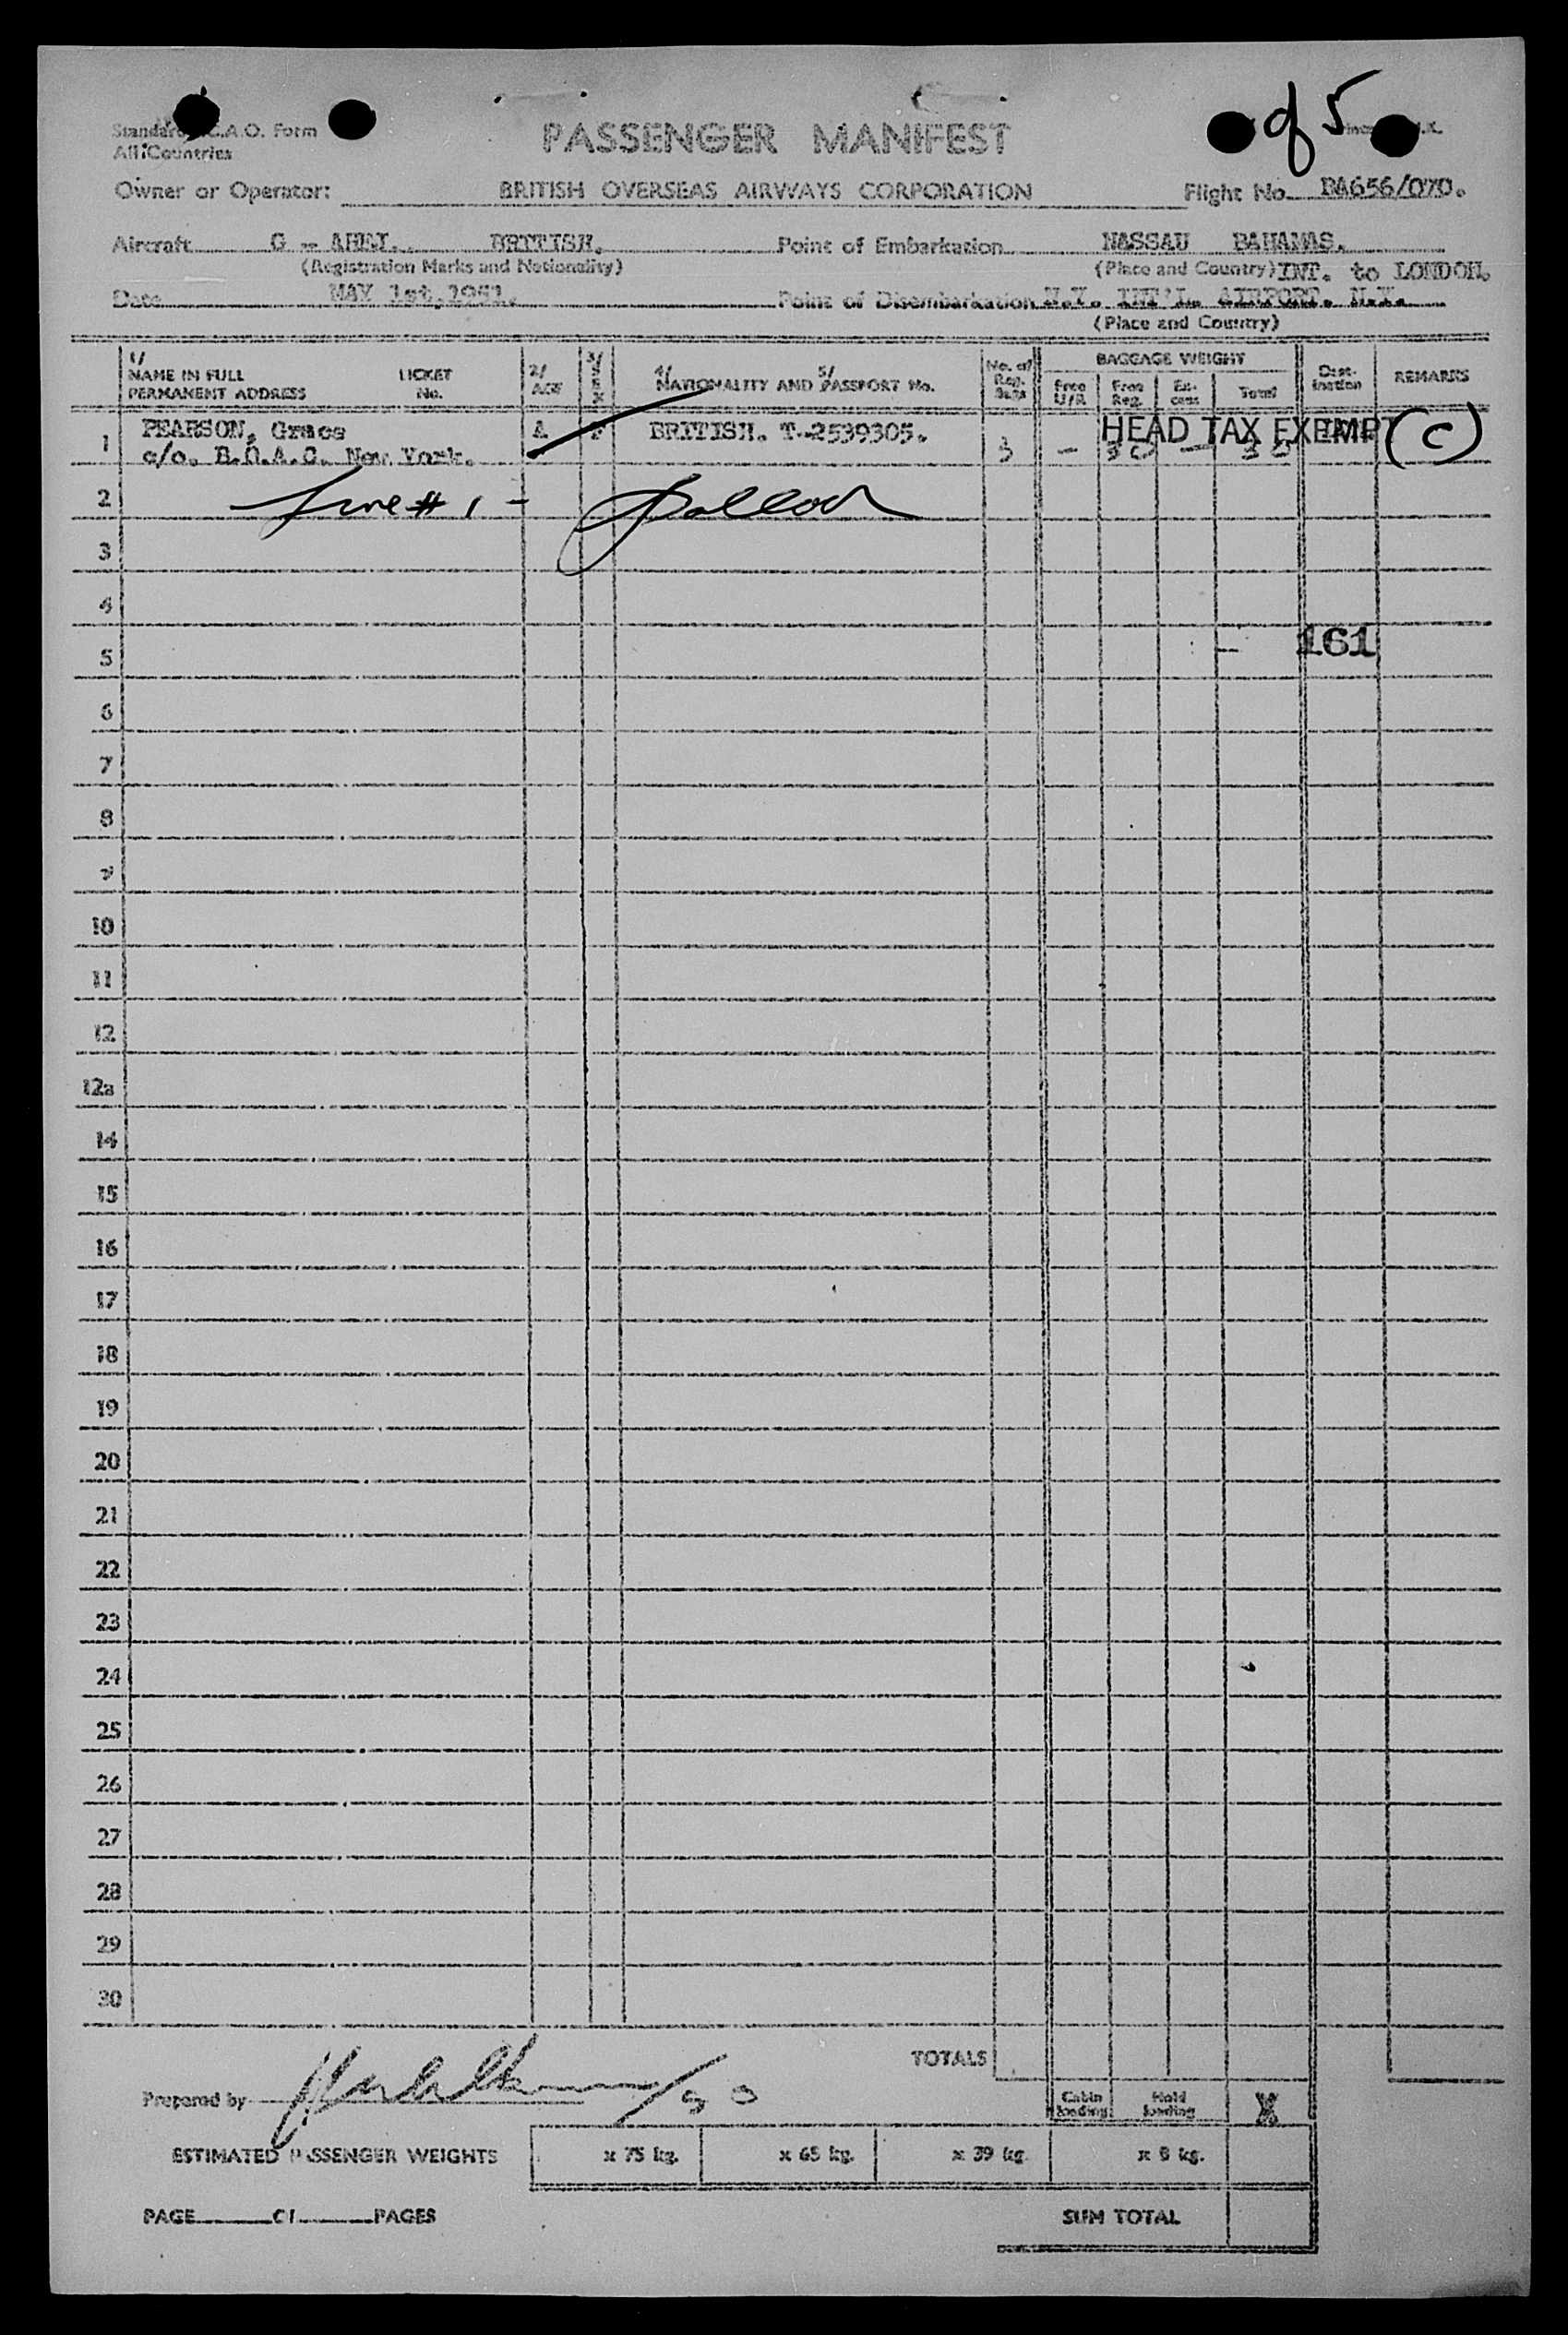 Standard C.A.O. Form
All Countries
PASSENGER MANIFEST
of 5
Owner or Operator: BRITISH OVERSEAS AIRWAYS CORPORATION Flight No. BA656/070.
Aircraft G - BRITISH. Point of Embarkation NASSAU BAHAMAS.
(Registration Marks and Nationality) (Place and Country) INT. to LONDON.
Date MAY 1st, 1951. Point of Disembarkation N.Y. INT'L. AIRPORT. N.Y.
(Place and Country)
1/ NAME IN FULL TICKET 2/ 3/ 4/ 5/ No. of BAGGAGE WEIGHT Dest-
PERMANENT ADDRESS No. AGE SEX NATIONALITY AND PASSPORT No. Reg. Bags Free U/R Free Reg. Ex-cess Total ination REMARKS
1 PEARSON, Grace A F BRITISH. T-2539305. 3 - 30 - 30 HEAD TAX EXEMPT (C)
c/o. B.O.A.C. New York.
2 Line # 1 -
3
4
5 161
6
7
8
9
10
11
12
12a
14
15
16
17
18
19
20
21
22
23
24
25
26
27
28
29
30
TOTALS
Prepared by
Cabin loading Hold loading
ESTIMATED PASSENGER WEIGHTS x 75 kg. x 65 kg. x 39 kg. x 8 kg.
PAGE OF PAGES SUM TOTAL